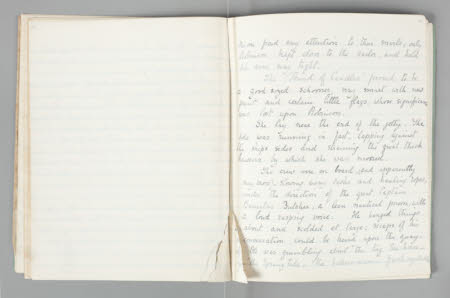 none paid any attention to these words, only
Robinson kept close to the sailor, and held
his arm very tight.
The "Pound of Candles" proved to be
a good sized schooner, very smart with new
paint and certain little flags, whose significance
was lost upon Robinson.
She lay near the end of the jetty. The
tide was running in fast, lapping against
the ships sides and straining the great thick
hawsers by which she was moored.
The crew were on board, and apparently
very busy stowing away and hauling ropes,
under the direction of the great Captain
Barnabas Butcher, a lean nautical person with
a loud rasping voice. He banged things
about and scolded at large; scraps of his
conversation could be heard upon the gang-
was grumbling about the tug, the
the Spring tide